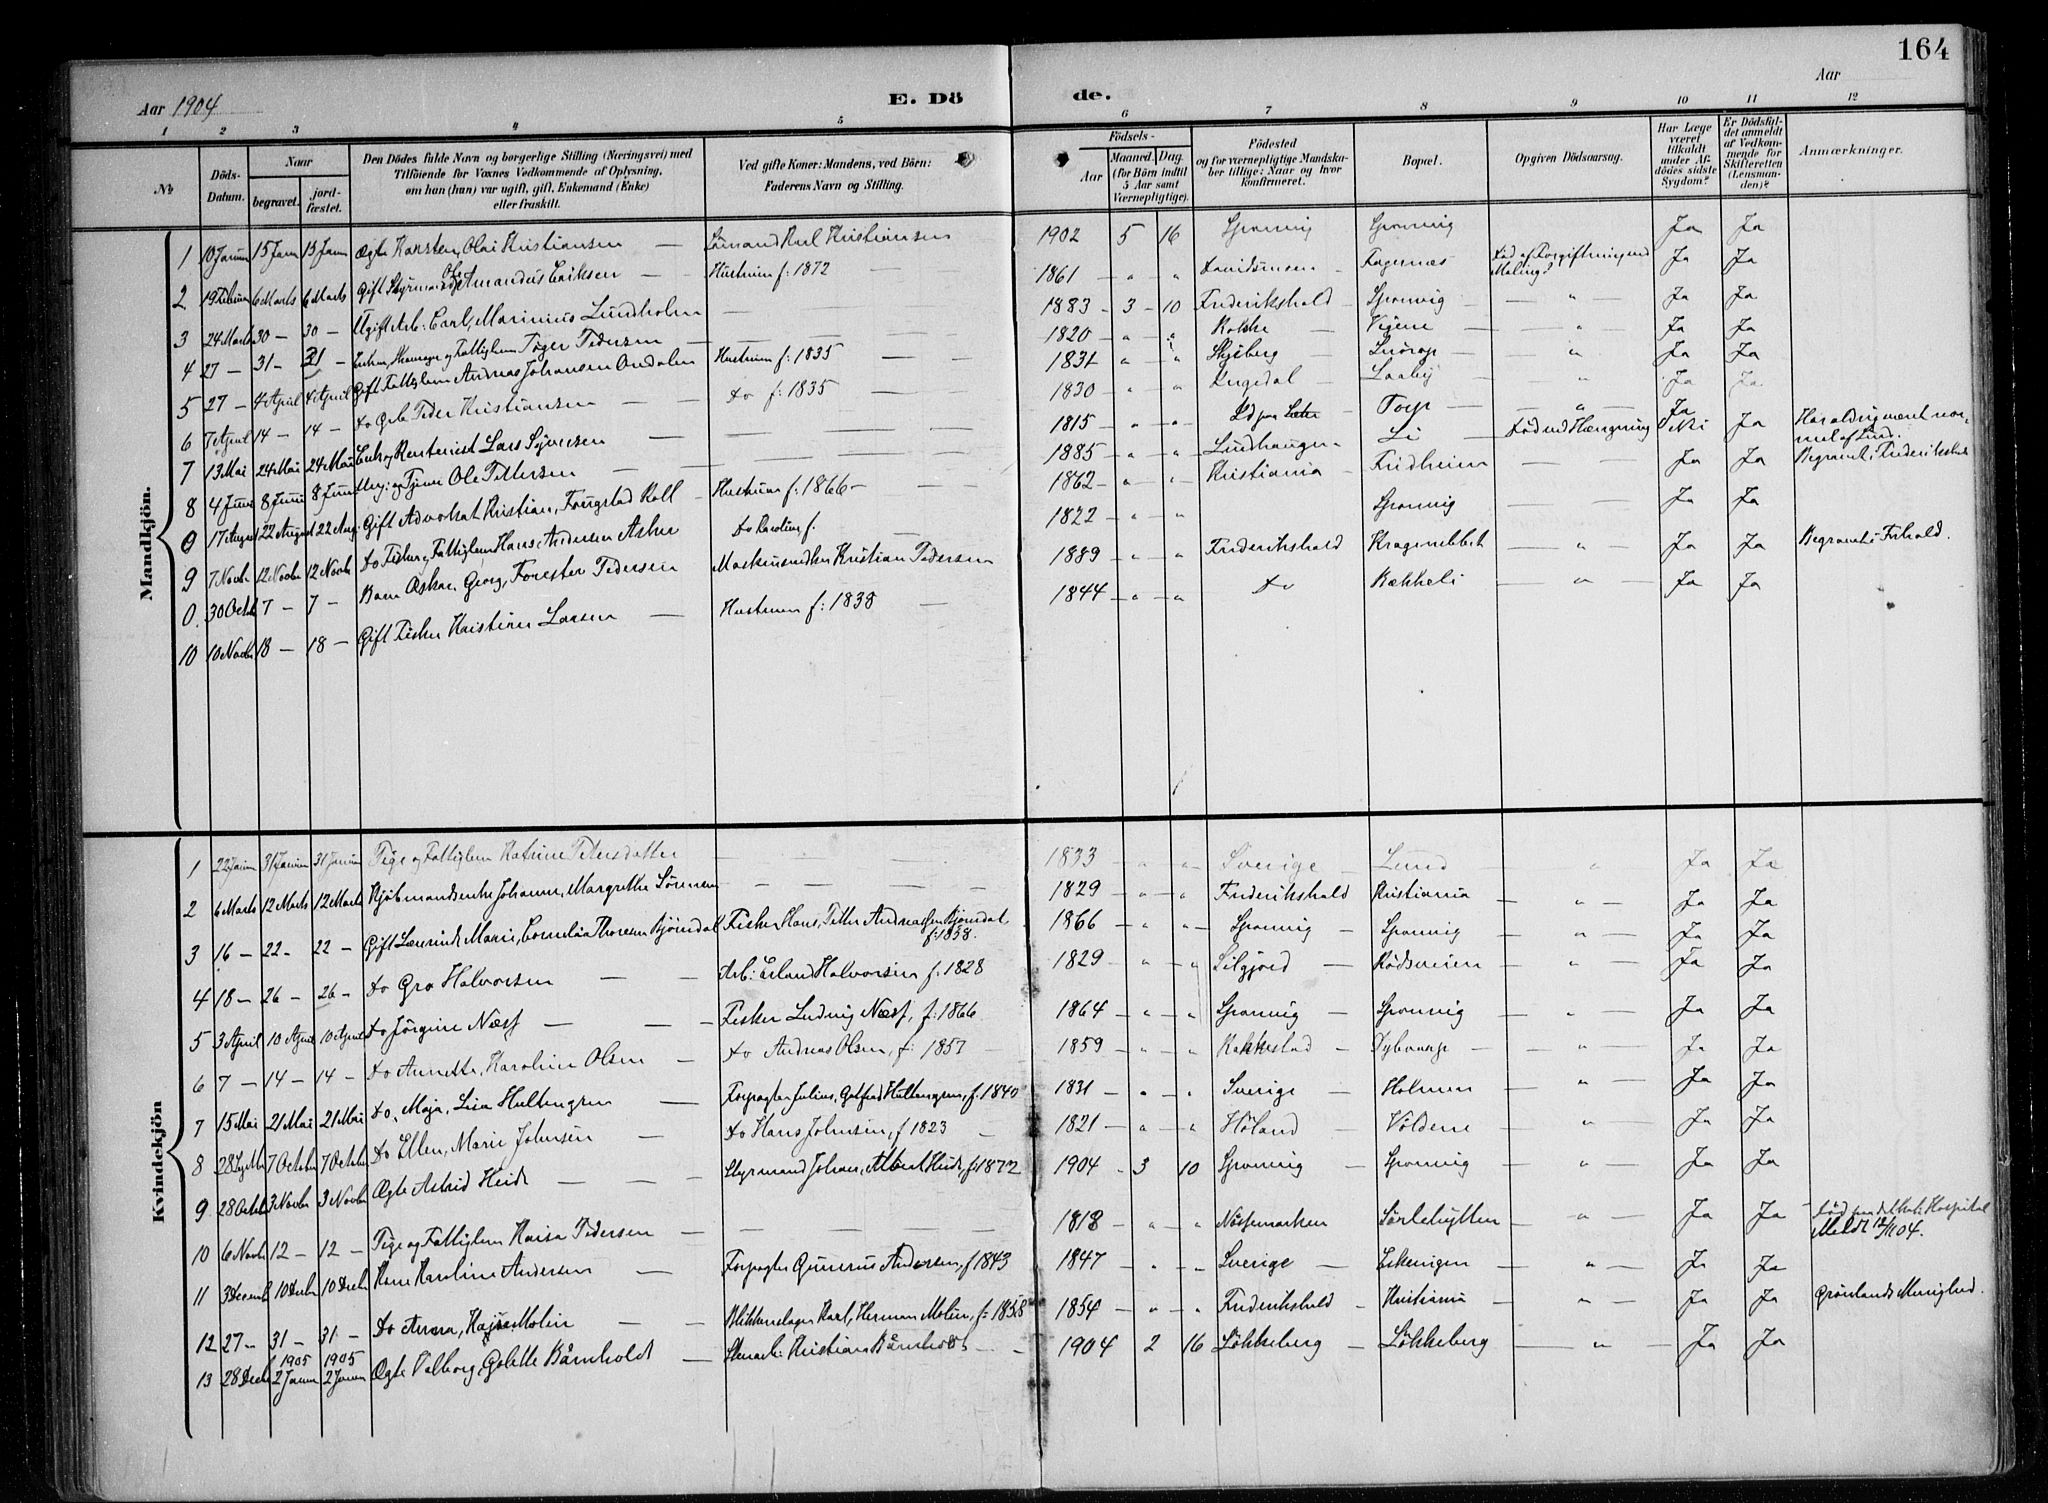 164
Aar 1904
E. Dö
de.
Aar
1 2 3 4 5 6 7 8 9 10 11 12
No
Döds-Datum.
Naar
begravet.
jord-fæstet.
Den Dödes fulde Navn og borgerlige Stilling (Næringsvei) med
Tilföiende for Voxnes Vedkommende af Oplysning,
om han (hun) var ugift, gift, Enkemand (Enke)
eller fraskilt.
Ved gifte Koner: Mandens, ved Börn:
Faderens Navn og Stilling.
Födsels-
Aar
Maaned. Dag.
(for Börn indtil
5 Aar samt
Værnepligtige).
Födested
og for værnepligtige Mandska-
ber tillige: Naar og hvor
konfirmeret.
Bopæl.
Opgiven Dödsaarsag.
Har Læge
været
tilkaldt
under Af-
dödes sidste
Sygdom?
Er Dödsfal-
det anmeldt
af Vedkom-
mende for
Skifteretten
(Lensman-
den)?
Anmærkninger.
Mandkjön.
1 10 Januar 15 Janr 15 Janr Ægte Karsten, Olai Kristiansen — Sömand Karl Kristiansen 1902 5 16 Sponvig Sponvig Ja Ja
2 19 Februar 6 Marts 6 Marts Gift Styrmand Ole Amandus Eriksen — Hustruen f: 1872 — 1861 " " Fagernæs Död af Forgiftning ved Maling? Ja Ja
3 24 Marts 30 — 30 — Ugift Arb: Carl, Marinius Lundholm — 1883 3 10 Frederikshald Sponvig — " — Ja Ja
4 27 — 31 — 31 — Tøger Pedersen — 1820 " " Rokke Vigene — " Ja Ja
5 27 — 4 April 4 April Gift Fattiglem Andreas Johansen Ondalen Hustruen f: 1835 — 1831 " " Skjeberg " Ja Ja
6 7 April 14 — 14 — do Peder Kristiansen — do f: 1835 — 1830 " " Laaby " Ja Ja
7 13 Mai 24 Mai 24 Mai Enkeg Rentenist Lars Syversen — 1815 " " Torp — " — Ja Ja
8 4 Juni 8 Juni 8 Juni Ole Pettersen — 1885 " " Lundhaugen Li Död ved Hængning Nei Ja
0 17 August 22 August 22 Aug. Gift Advokat Kristian, Fougstad Roll — Hustruen f: 1866 — 1862 " " Kristiania Fridheim — Ja Ja Begravet i Frederikshald
9 7 Novbr 12 Novbr 12 Novbr do Fisker og Fattiglem Hans, Andersen Asker do Karoline f. 1822 " " Sponvig — Ja Ja
0. 30 Octb 7 — 7 — Barn Oskar, Georg, Forester Pedersen Maskinsmedker Kristian Pedersen 1889 " " Frederikshald Kragenebbet — " — Ja Ja Begravet i Frhald.
10 10 Novbr 18 — 18 — Gift Fisker Kristian Larsen — Hustruen f: 1838 — 1844 " " do Bækkeli — " — Ja Ja
Kvindekjön
1 22 Januar 31 Januar 31 Januar Pige og Fattiglem Katrine Petersdatter — 1833 " " Sverige Lund " Ja Ja
2 6 Marts 12 Marts 12 Marts Kjöbmandsenke Johanne, Margrethe Sörensen — 1829 " " Frederikshald Kristiania — " — Ja Ja
3 16 — 22 — 22 — Gift Lærerinde Marie, Cornelia Thoresen Bjöundal Fisker Hans, Petter Andreassen Bjöundal f: 1838. 1866 " " Sponvig — Sponvig — " — Ja Ja
4 18 — 26 — 26 — do Gro Halvorsen — Arb: Erland Halvorsen f: 1828 1829 " " Silgjord — Rödsveien — " — Ja Ja
5 3 April 10 April 10 April do Jörgine Næss — Fisker Ludvig Næss, f: 1866 1864 " " Sponvig — Sponvig — " — Ja Ja
6 7 — 14 — 14 — do Annette, Karoline Olsen — do Andreas Olsen, f: 1857 1859 " " Rakkestad — " — Ja Ja
7 15 Mai 21 Mai 21 Mai do, Maja, Lisa Hultengren — Forpagter Julius, Gotfred Hultengren, f. 1840 1831 " " Sverige — Holmen — " — Ja Ja
8 7 Octobr 7 Octobr do Ellen, Marie Johnsen — do Hans Johnsen, f 1823 — 1821 " " Höland — Voldene — " — Ja Ja
9 28 Octb 3 Novbr 3 Novbr Ægte Astrid Heide — Styrmand Johan, Albert Heide, f: 1872 1904 3 10 Sponvig — Sponvig — " — Ja Ja
10 6 Novbr 12 — 12 — Pige og Fattiglem Kaisa Pedersen — 1818 " " Nössemarken Sörlehytten — " — Ja Ja Hospital Meldt 12/11 04.
11 3 Decemb 10 Decbr 10 Decbr Kone Karoline Andersen — Forpagter Gunerius Andersen, f 1843 1847 " " Sverige — Eskevigen — " — Ja Ja
12 27 — 31 — 31 — do Anna, Kajsa Molin — Blikkenslager Karl, Herman Molin, f: 1858 1854 " " Frederikshald Kristiania — " — Ja Ja Grönlands Menighed.
13 28 Decbr 1905 2 Januar 1905 2 Januar Ægte Valborg, Golette Bårnholdt — Kristian Bårnholdt — 1904 2 16 Lökkeberg — Lökkeberg — " — Ja Ja